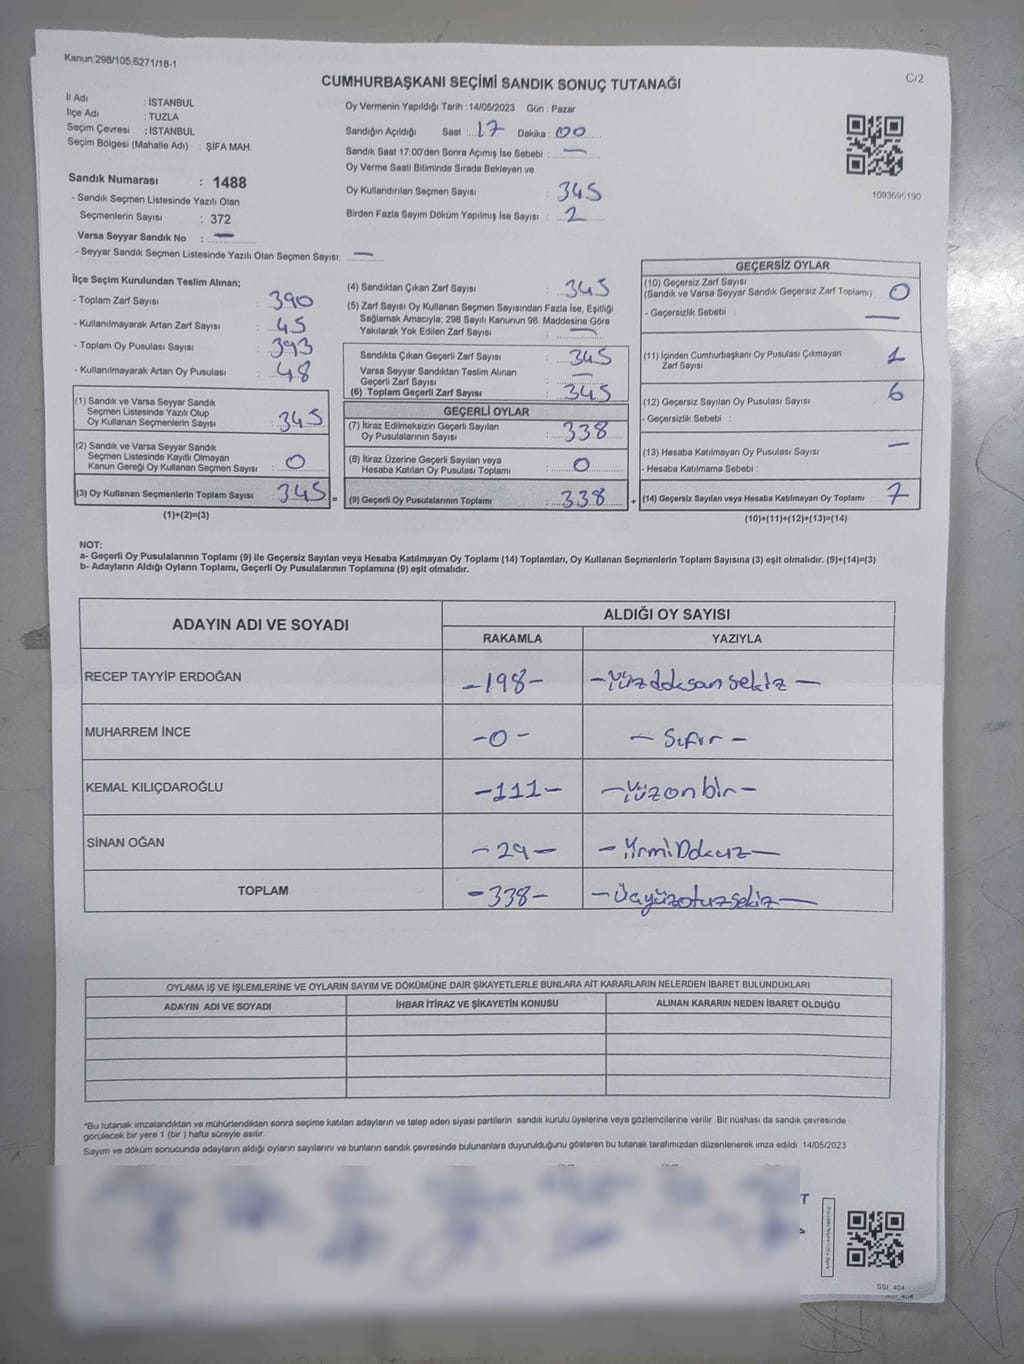 Kanun:298/105,6271/18-1
C/2
CUMHURBAŞKANI SEÇİMİ SANDIK SONUÇ TUTANAĞI
İl Adı : İSTANBUL
İlçe Adı : TUZLA
Seçim Çevresi : İSTANBUL
Seçim Bölgesi (Mahalle Adı) : ŞİFA MAH.
Sandık Numarası : 1488
- Sandık Seçmen Listesinde Yazılı Olan
Seçmenlerin Sayısı : 372
Varsa Seyyar Sandık No : —
- Seyyar Sandık Seçmen Listesinde Yazılı Olan Seçmen Sayısı: —
Oy Vermenin Yapıldığı Tarih : 14/05/2023 Gün : Pazar
Sandığın Açıldığı Saat : 17 Dakika : 00
Sandık Saat 17:00'den Sonra Açımış İse Sebebi : —
Oy Verme Saati Bitiminde Sırada Bekleyen ve
Oy Kullandırılan Seçmen Sayısı : 345
Birden Fazla Sayım Döküm Yapılmış İse Sayısı : 2
1093696190
İlçe Seçim Kurulundan Teslim Alınan;
- Toplam Zarf Sayısı : 390
- Kullanılmayarak Artan Zarf Sayısı : 45
- Toplam Oy Pusulası Sayısı : 393
- Kullanılmayarak Artan Oy Pusulası : 48
(1) Sandık ve Varsa Seyyar Sandık
Seçmen Listesinde Yazılı Olup
Oy Kullanan Seçmenlerin Sayısı : 345
(2) Sandık ve Varsa Seyyar Sandık
Seçmen Listesinde Kayıtlı Olmayan
Kanun Gereği Oy Kullanan Seçmen Sayısı : 0
(3) Oy Kullanan Seçmenlerin Toplam Sayısı : 345 =
(1)+(2)=(3)
(4) Sandıktan Çıkan Zarf Sayısı : 345
(5) Zarf Sayısı Oy Kullanan Seçmen Sayısından Fazla İse, Eşitliği
Sağlamak Amacıyla; 298 Sayılı Kanunun 98. Maddesine Göre
Yakılarak Yok Edilen Zarf Sayısı : —
Sandıkta Çıkan Geçerli Zarf Sayısı : 345
Varsa Seyyar Sandıktan Teslim Alınan
Geçerli Zarf Sayısı : —
(6) Toplam Geçerli Zarf Sayısı : 345
GEÇERLİ OYLAR
(7) İtiraz Edilmeksizin Geçerli Sayılan
Oy Pusulalarının Sayısı : 338
(8) İtiraz Üzerine Geçerli Sayılan veya
Hesaba Katılan Oy Pusulası Toplamı : 0
(9) Geçerli Oy Pusulalarının Toplamı : 338 +
GEÇERSİZ OYLAR
(10) Geçersiz Zarf Sayısı
(Sandık ve Varsa Seyyar Sandık Geçersiz Zarf Toplamı) 0
- Geçersizlik Sebebi : —
(11) İçinden Cumhurbaşkanı Oy Pusulası Çıkmayan
Zarf Sayısı 1
(12) Geçersiz Sayılan Oy Pusulası Sayısı 6
- Geçersizlik Sebebi :
(13) Hesaba Katılmayan Oy Pusulası Sayısı —
- Hesaba Katılmama Sebebi :
(14) Geçersiz Sayılan veya Hesaba Katılmayan Oy Toplamı 7
(10)+(11)+(12)+(13)=(14)
NOT:
a- Geçerli Oy Pusulalarının Toplamı (9) ile Geçersiz Sayılan veya Hesaba Katılmayan Oy Toplamı (14) Toplamları, Oy Kullanan Seçmenlerin Toplam Sayısına (3) eşit olmalıdır. (9)+(14)=(3)
b- Adayların Aldığı Oyların Toplamı, Geçerli Oy Pusulalarının Toplamına (9) eşit olmalıdır.
ADAYIN ADI VE SOYADI
ALDIĞI OY SAYISI
RAKAMLA YAZIYLA
RECEP TAYYİP ERDOĞAN -198- - Yüz doksan sekiz -
MUHARREM İNCE -0- - Sıfır -
KEMAL KILIÇDAROĞLU -111- - Yüz on bir -
SİNAN OĞAN -29- - Yirmi Dokuz -
TOPLAM -338- - Üçyüzotuzsekiz -
OYLAMA İŞ VE İŞLEMLERİNE VE OYLARIN SAYIM VE DÖKÜMÜNE DAİR ŞİKAYETLERLE BUNLARA AİT KARARLARIN NELERDEN İBARET BULUNDUKLARI
ADAYIN ADI VE SOYADI İHBAR İTİRAZ VE ŞİKAYETİN KONUSU ALINAN KARARIN NEDEN İBARET OLDUĞU
*Bu tutanak imzalandıktan ve mühürlendikten sonra seçime katılan adayların ve talep eden siyasi partilerin sandık kurulu üyelerine veya gözlemcilerine verilir. Bir nüshası da sandık çevresinde
görülecek bir yere 1 (bir ) hafta süreyle asılır.
Sayım ve döküm sonucunda adayların aldığı oyların sayılarını ve bunların sandık çevresinde bulunanlara duyurulduğunu gösteren bu tutanak tarafımızdan düzenlenerek imza edildi. 14/05/2023
SSI_404